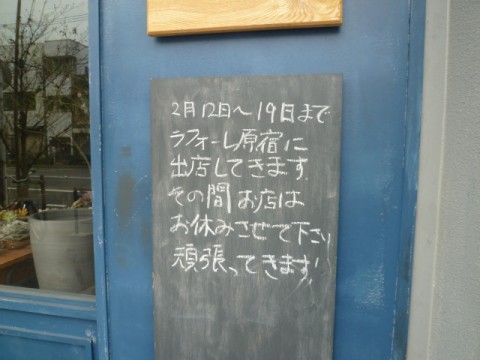 2月12日〜19日まで
ラフォーレ原宿に
出店してきます.
その間お店は
お休みさせて下さい
頑張ってきます!